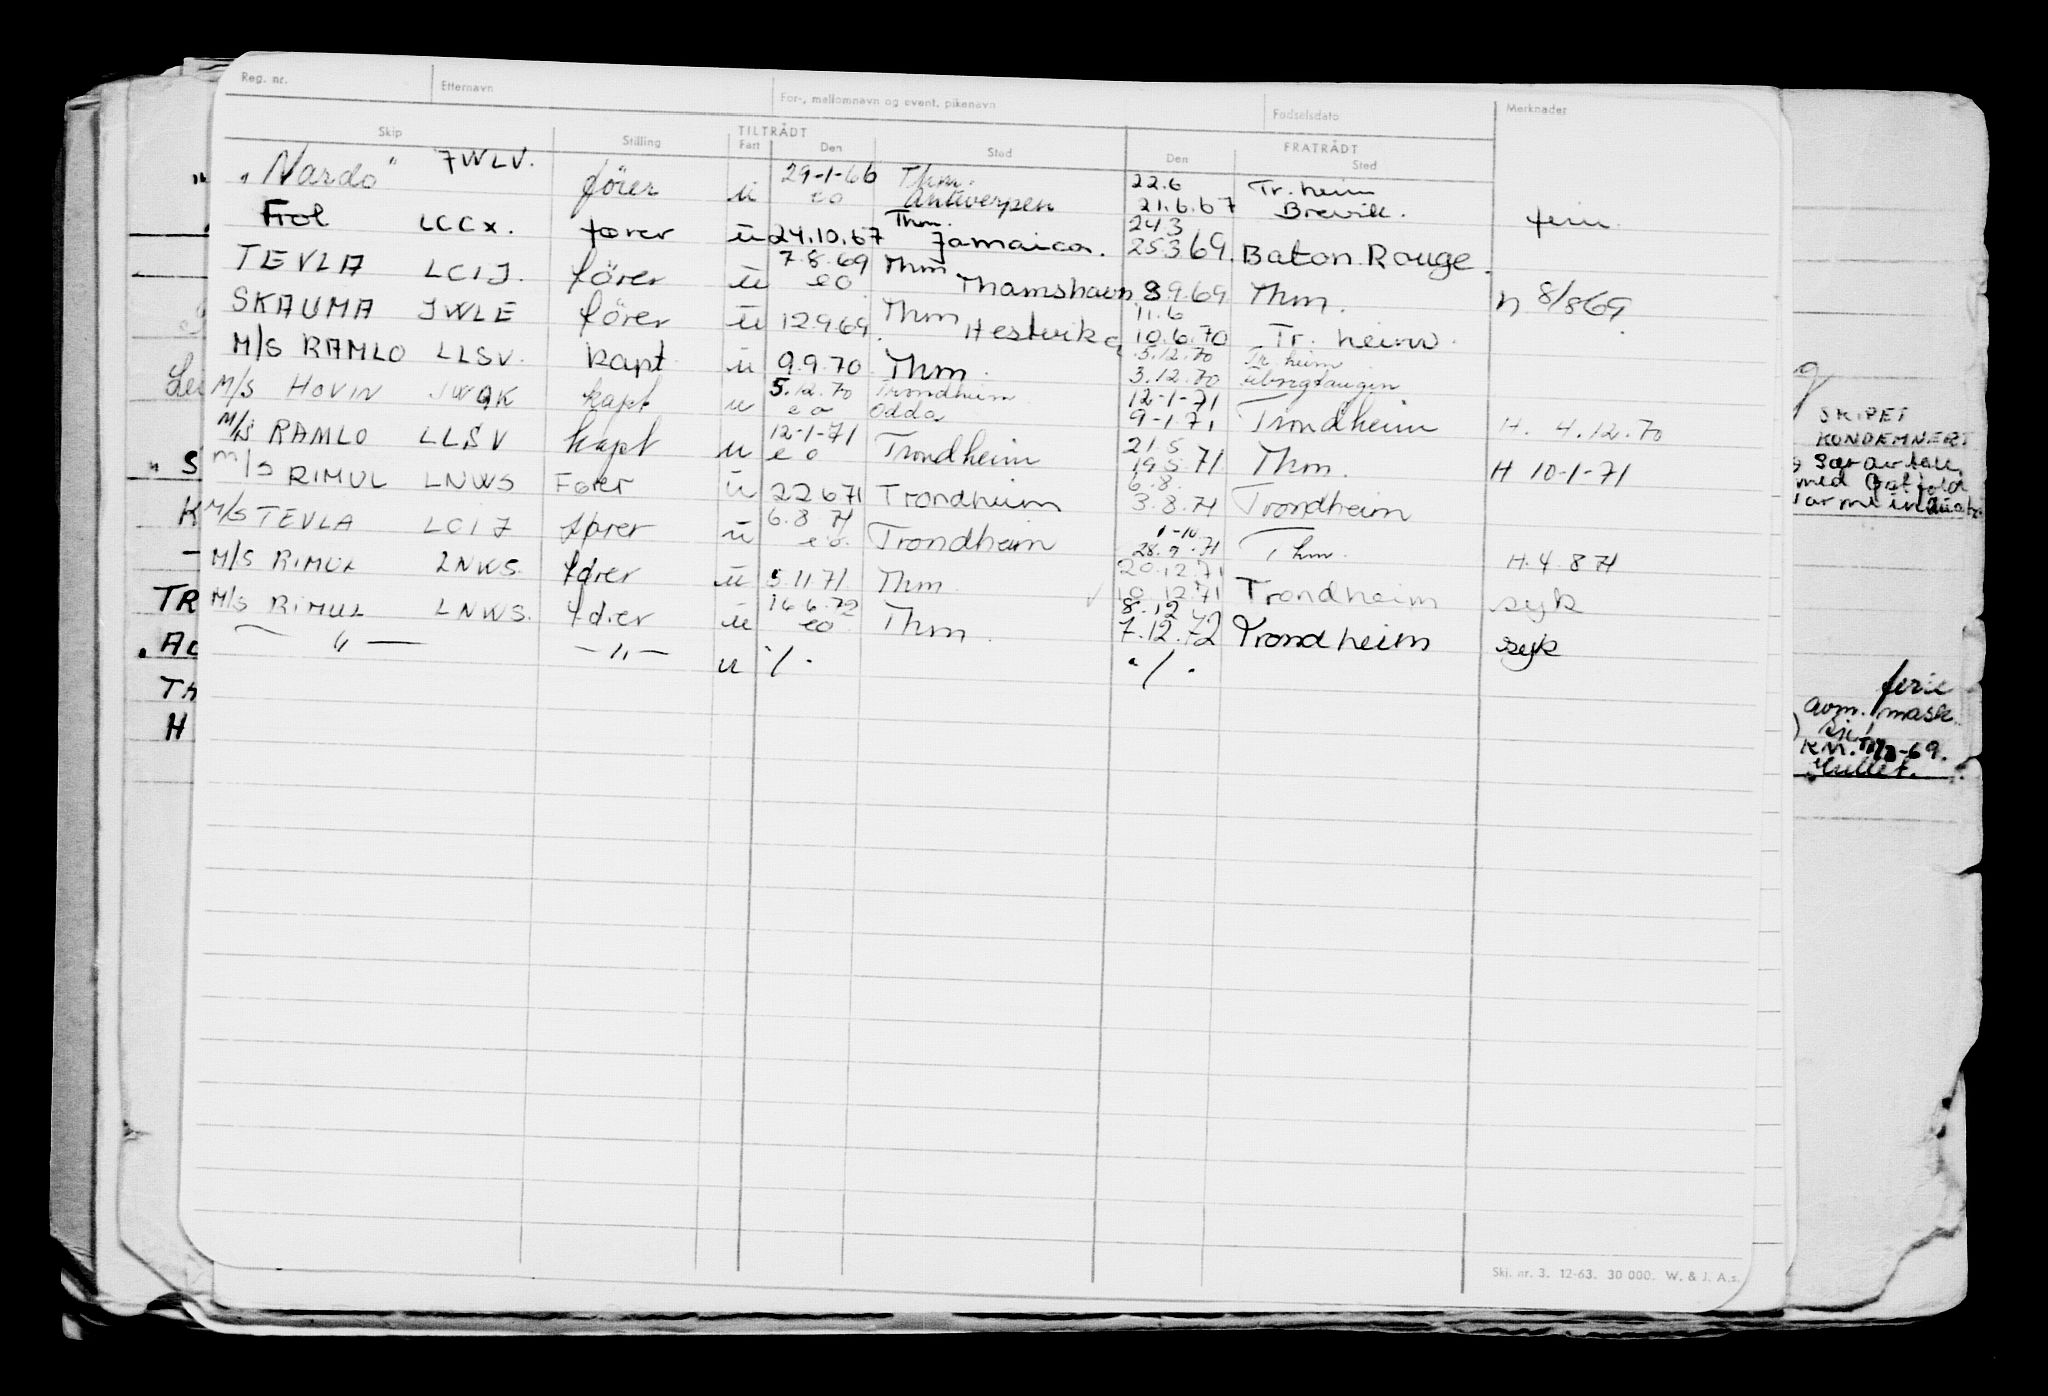 Reg. nr. Etternavn For-, mellomnavn og event. pikenavn Fødselsdato Merknader
TILTRÅDT FRATRÅDT
Skip Stilling Fart Den Sted Den Sted
"Nardo" JWLV. förer ū 29-1-66 eo Thm. Antwerpen 22.6 21.6.67 Tr.heim Brevik.
Frol LCCX. fører ū 24.10.67 Thm. Jamaica. 24.3 25.3.69. Baton Rouge.
TEVLA LCIJ. förer ū 7.8.69 eo Thm Thamshavn 8.9.69 Thm. n 8/8 69
SKAUMA JWLE förer ū 12.9.69. Thm Hestvika 11.6 10.6.70 Tr. heim.
M/S RAMLO LLSV. kapt ū 9.9.70 Thm. 5.12.70 3.12.70 Tr. heim
M/S HOVIN JWQK kapt u 5.12.70 eo Trondheim Odda 12-1-71 9-1.71 Trondheim H. 4.12.70
M/S RAMLO LLSV kapt u 12-1-71 eo Trondheim 21.5 19.5.71 Thm. H 10-1-71
M/S RIMUL LNWS Fører ū 22.6.71 Trondheim 6.8. 3.8.71 Trondheim
M/S TEVLA LCIJ fører ū 6.8 71 eo. Trondheim 1-10 28.9.71 Thm. H. 4.8 71
M/S RIMUL LNWS. fører ū 5.11.71. Thm 20.12.71 10.12.71 Trondheim syk
M/S RIMUL LNWS. fører ū 16.6.72 eo Thm. 8.12 7.12.72 Trondheim syk
— " — — " — u ·/· ·/·
SKIPET
KONDEMNERT
TR
AC
TA
H
ferie
avm. mask
Ski. nr. 3. 12-63. 30 000. W. & J. A.s.